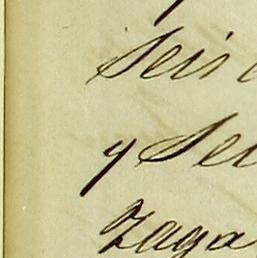 Seis
y Sei
Zaga